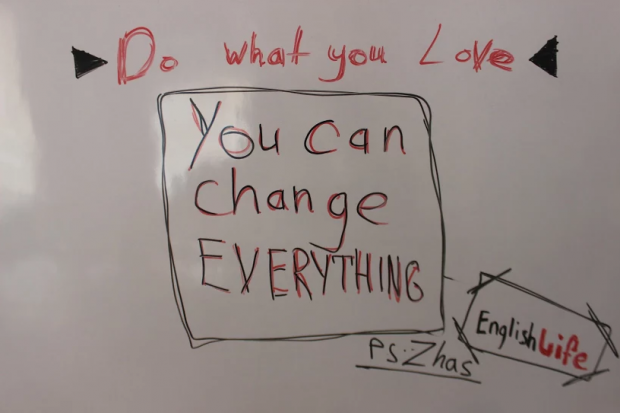 Do what you Love
You can
change
EVERYTHING
English Life
Ps: Zhas